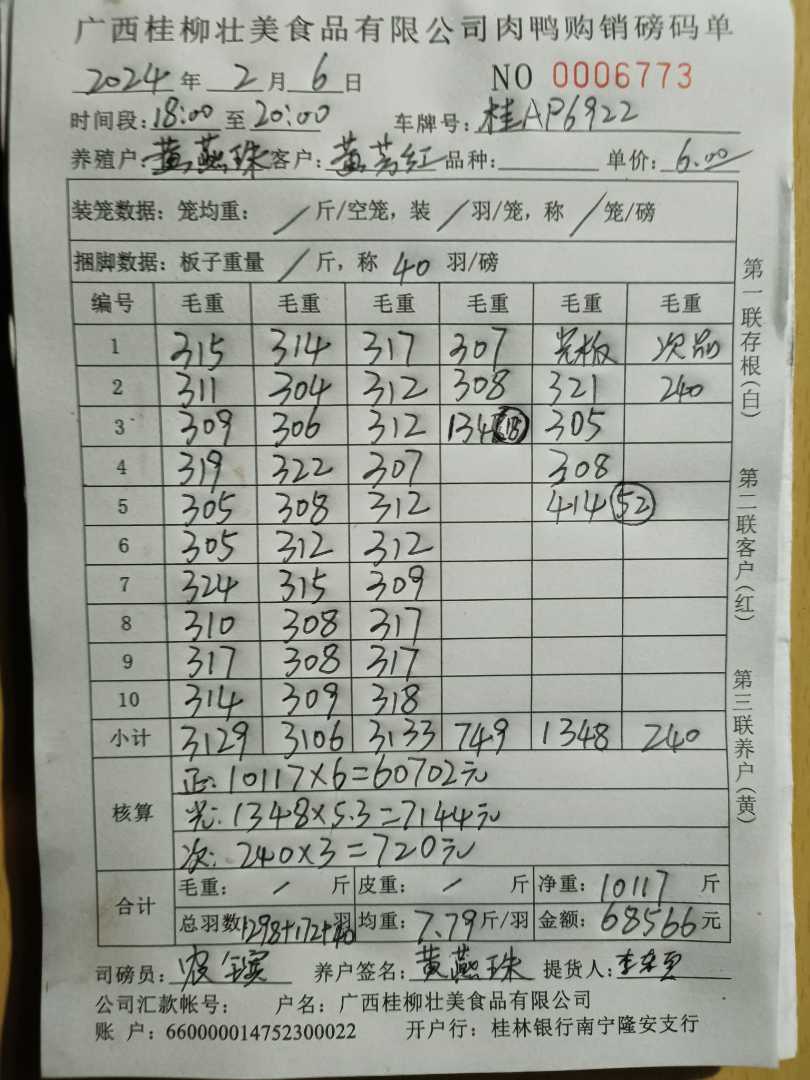 广西桂柳壮美食品有限公司肉鸭购销磅码单
2024 年 2 月 6 日 NO 0006773
时间段: 18:00 至 20:00 车牌号: 桂AP6922
养殖户: 黄燕珠 客户: 黄芳红 品种: 单价: 6.00
装笼数据: 笼均重: / 斤/空笼, 装 / 羽/笼, 称 / 笼/磅
捆脚数据: 板子重量 / 斤, 称 40 羽/磅
编号 毛重 毛重 毛重 毛重 毛重 毛重
1 315 314 317 307 光板 次品
2 311 304 312 308 321 240
3 309 306 312 134 18 305
4 319 322 307 308
5 305 308 312 414 52
6 305 312 312
7 324 315 309
8 310 308 317
9 317 308 317
10 314 309 318
小计 3129 3106 3133 749 1348 240
核算
正: 10117×6=60702元
光: 1348×5.3=7144元
次: 240×3=720元
合计
毛重: / 斤 皮重: / 斤 净重: 10117 斤
总羽数 1298+172+40 羽 均重: 7.79 斤/羽 金额: 68566 元
司磅员: 养户签名: 黄燕珠 提货人:
公司汇款帐号: 户名: 广西桂柳壮美食品有限公司
账 户: 660000014752300022 开户行: 桂林银行南宁隆安支行
第一联存根(白)
第二联客户(红)
第三联养户(黄)